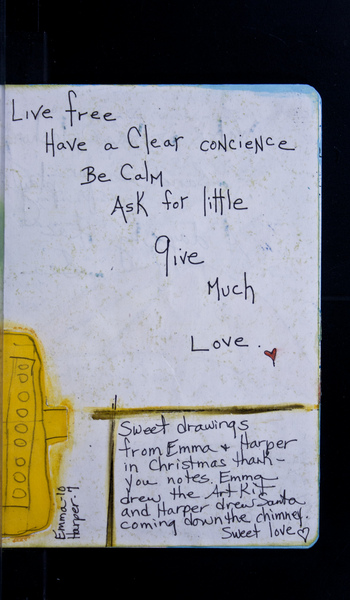 Live free
Have a Clear concience
Be Calm
Ask for little
give
Much
Love.
Sweet drawings
from Emma + Harper
in Christmas thank-
you notes. Emma
drew the Art Kit
and Harper drew Santa
coming down the chimney.
Sweet love
Emma-10
Harper-7